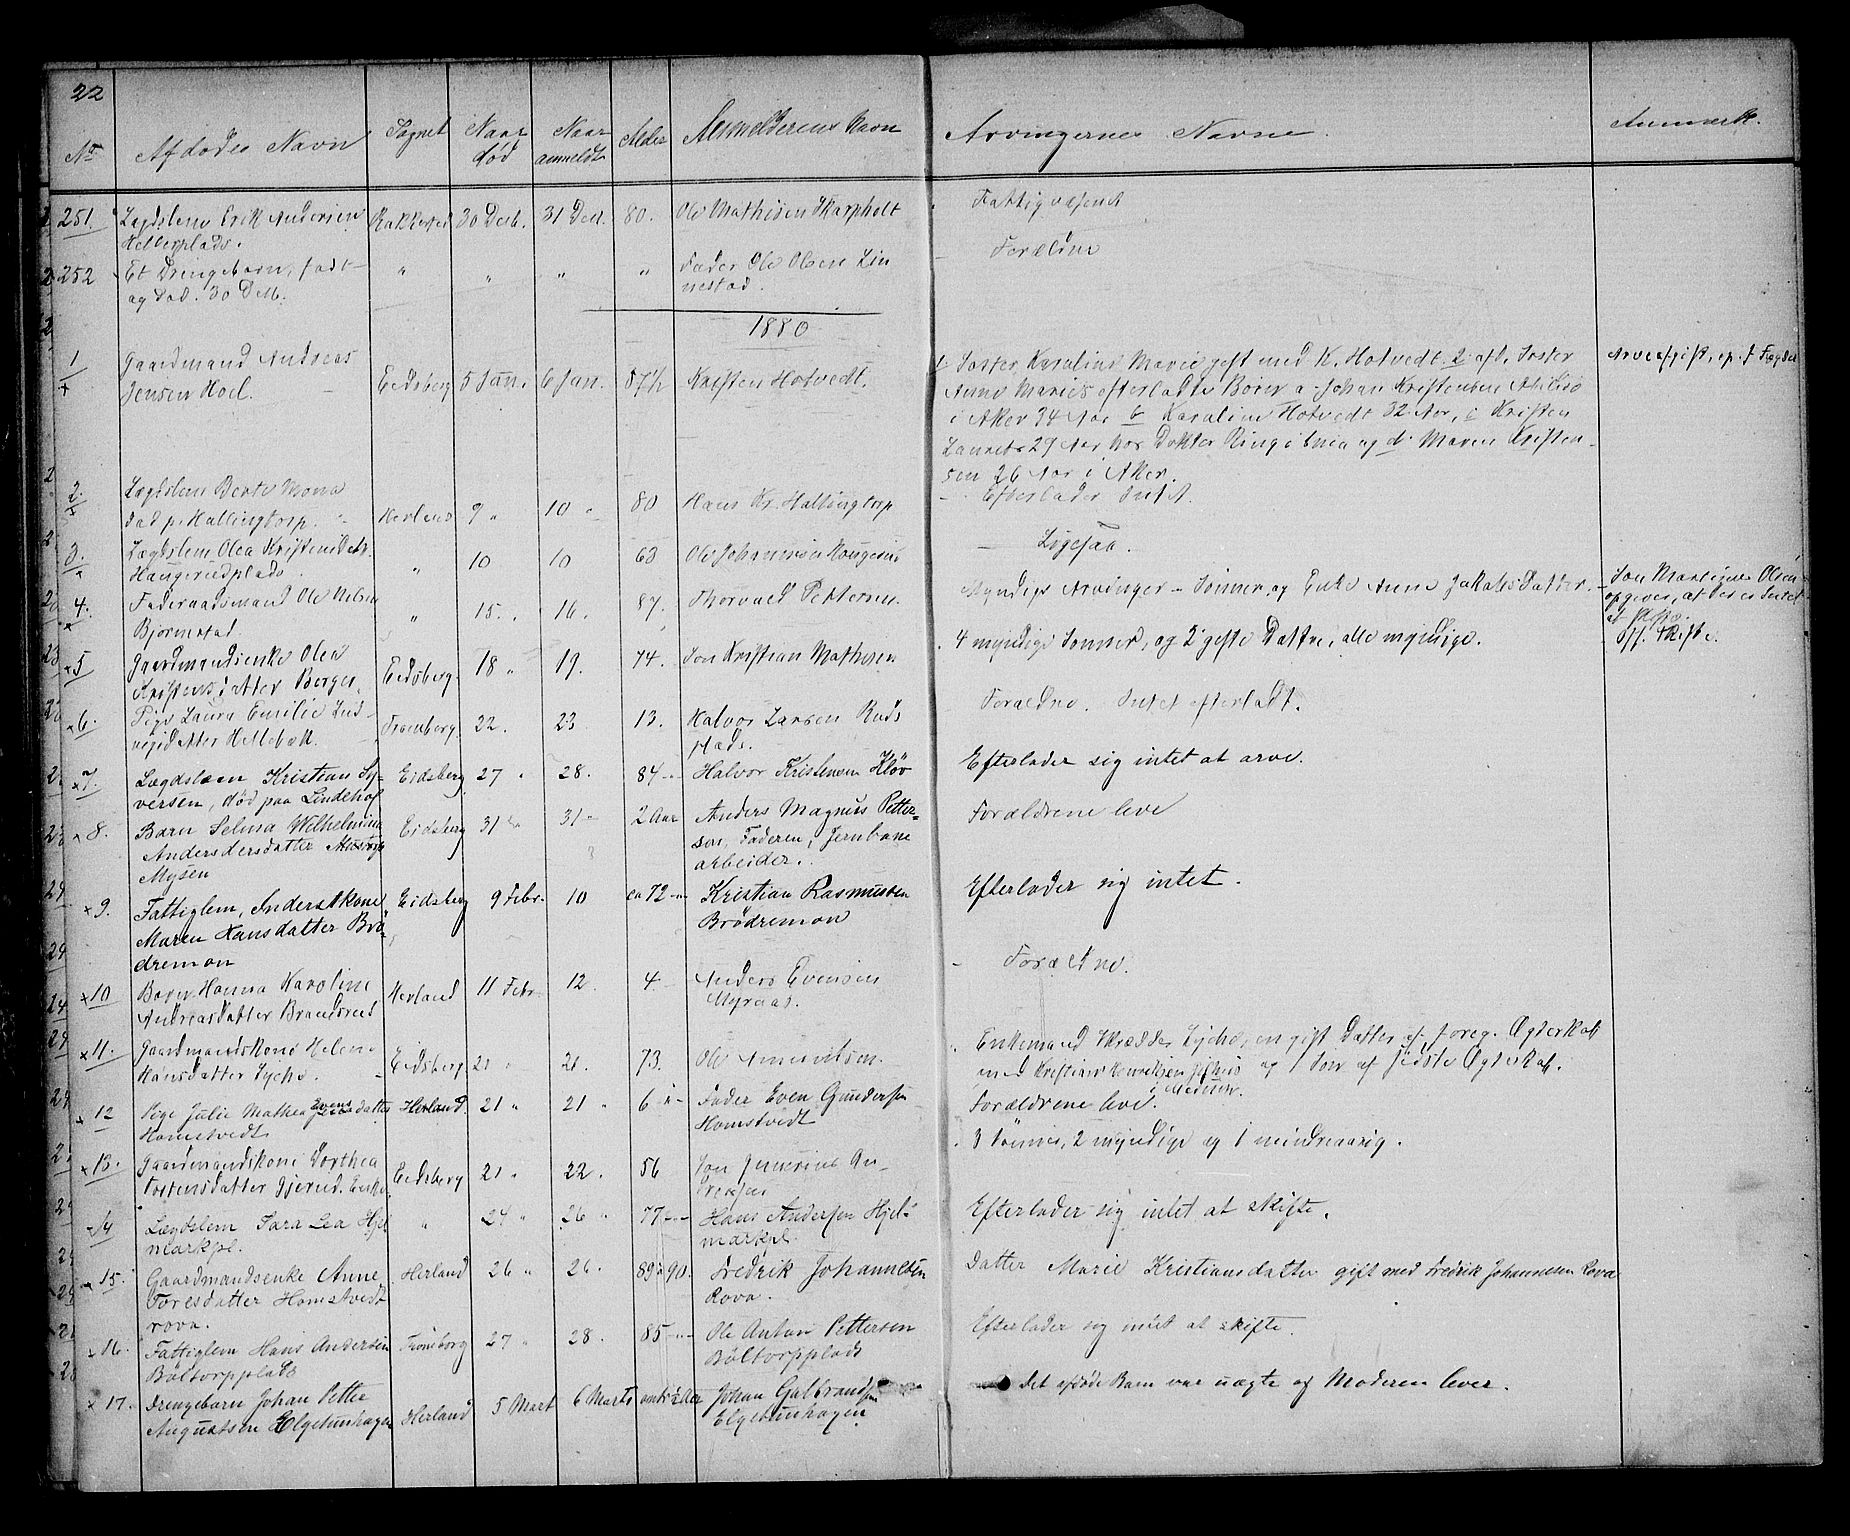 22
No Afdødes Navn Sognet Naar død Naar anmeldt Alder Anmelderens Navn Arvingernes Navne Anmærk.
251. Lægdslem Erik Andersen Rakkestad 30 Decb. 31 Dec. 80. Ole Mathisen Skarpholt Fattigvæsenet
Hellerplads.
252 Et Drengebarn, født " " " " Fader Ole Olsen Lin Forældrene
og død. 30 Decb. nestad.
1880
1 Gaardmand Andreas Eidsberg 5 Jan. 6 Jan. 87½ Kristen Hotvedt. 1 Søster Karoline Marie gift med K. Hotvedt. 2 afd. Søster Arveafgift
Jensen Hoel. Anne Maries efterladte Børn a Johan Kristensen
i Aker 34 Aar b Karoline Hotvedt 32 Aar, c Kristen
Laurits 29 Aar hos Doktor Ring og d. Maren Kristen-
sen 26 Aar i Aker.
2. Lægdslem Berte Mona Herland 9 " 10 " 80 Hans Kr. Hallingtorp - Efterlader Intet.
død p. Hallingtorp.
3. Lægdslem Olea Kristensdatter " 10 10 63 Ole Johannesen Haugerud - Ligesaa.
Haugerudplads
4. Føderaadsmand Ole Nilsen " 15. " 16. 87. Thorvald Pettersen. Myndige Arvinger - Sønner, og Enke Anne Jakobsdatter. - Søn Martinus Olsen
Bjørnestad. opgiver, at der er Intet
at skifte.
5 Gaardmandsenke Olea Eidsberg 18 " 19. 74. Søn Kristian Mathisen 4 myndige Sønner, og 2 gifte Døttre, alle myndige. Off. Skifte.
Kristensdatter Berger.
6. Pige Laura Emilie Lud- Trømborg 22. 23 13. Halvor Larsen Ruds Forældre. Intet efterladt.
vigsdatter Hellebæk. plads.
7. Lægdslem Kristian Sy- Eidsberg 27 " 28. 84 - Halvor Kristensen Kløv Efterlader sig intet at arve.
versen, død paa Lindehol
8. Barn Selma Wilhelmine Eidsberg 31 " 31 - 2 Aar Anders Magnus Petter- Forældrene leve
Andersdersdatter sen, Faderen, Jernbane
Mysen arbeider.
9. Fattiglem, Anders kone Eidsberg 9 Febr. 10 ca 72 - Kristian Rasmussen Efterlader sig intet.
Maren Hansdatter Brø- Brödremon
dremon
10 Barn Hanna Karoline Herland 11 Febr 12. 4 Anders Evensen - Forældrene.
Andreasdatter Brandsrud Myraas.
11. Gaardmandskone Helene Eidsberg 21 " 21. 73. Ole Amundsen. Enkemand Skrædder Lycho, en gift Datter af foreg. Ægteskab
Hansdatter Lycho. med Kristian Henriksen og 1 Søn af sidste Ægteskab.
i Medicin.
12 Pige Julie Mathea Evensdatter Herland. 21 " 21 " 6 - " - Fader Even Gundersen Forældrene leve.
Homstvedt Homstvedt
13. Gaardmandskone Dorthea Eidsberg 21 " 22. 56 Søn Junerius An- 3 Sønner, 2 myndige og 1 mindreaarig.
Torstensdatter Gjerud. Enke. dreasen
14 Lægdslem Sara Lea Hjel " 24 " 26 " 77 - " - Hans Andersen Hjel- Efterlader sig intet at skifte.
markpl. markpl.
15. Gaardmandsenke Anne Herland 26 " 26. 89 a 90. Fredrik Johannesen Datter Marie Kristiansdatter gift med Fredrik Johannesen Rova
Toresdatter Homstvedt Rova.
rova.
16. Fattiglem Hans Andersen Trömborg 27 " 28. 85 - " - Ole Anton Pettersen Efterlader sig intet at skifte.
Böltorpplads Böltorpplads
17. Drengebarn Johan Petter Herland 5 Mart 6 Marts omtr. 2 Aar Johan Gulbrandsen Det afdöde Barn var uægte og Moderen lever.
Augustsen Elgetunhagen Elgetunhagen